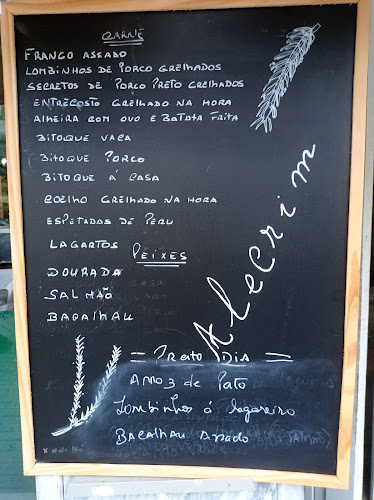 CARNE
FRANGO ASSADO
LOMBINHOS DE PORCO GRELHADOS
SECRETOS DE PORCO PRETO GRELHADOS
ENTRECOSTO GRELHADO NA HORA
ALHEIRA COM OVO E BATATA FRITA
BITOQUE VACA
BITOQUE PORCO
BITOQUE Á CASA
COELHO GRELHADO NA HORA
ESPETADAS DE PERU
LAGARTOS
PEIXES
DOURADA
SALMÃO
BACALHAU
Alecrim
= PRATO DIA =
ARROZ de Pato
Lombinhos á lagareiro
BACALHAU Assado